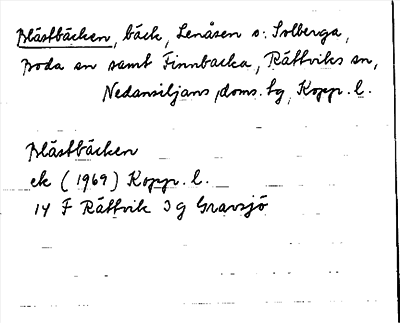 Blästbäcken, bäck, Lenåsen o. Solberga,
Boda sn samt Finnbacka, Rättviks sn,
Nedansiljans doms. tg, Kopp. l.
Blästbäcken
ek (1969) Kopp. l.
14 F Rättvik 3 g Gravsjö